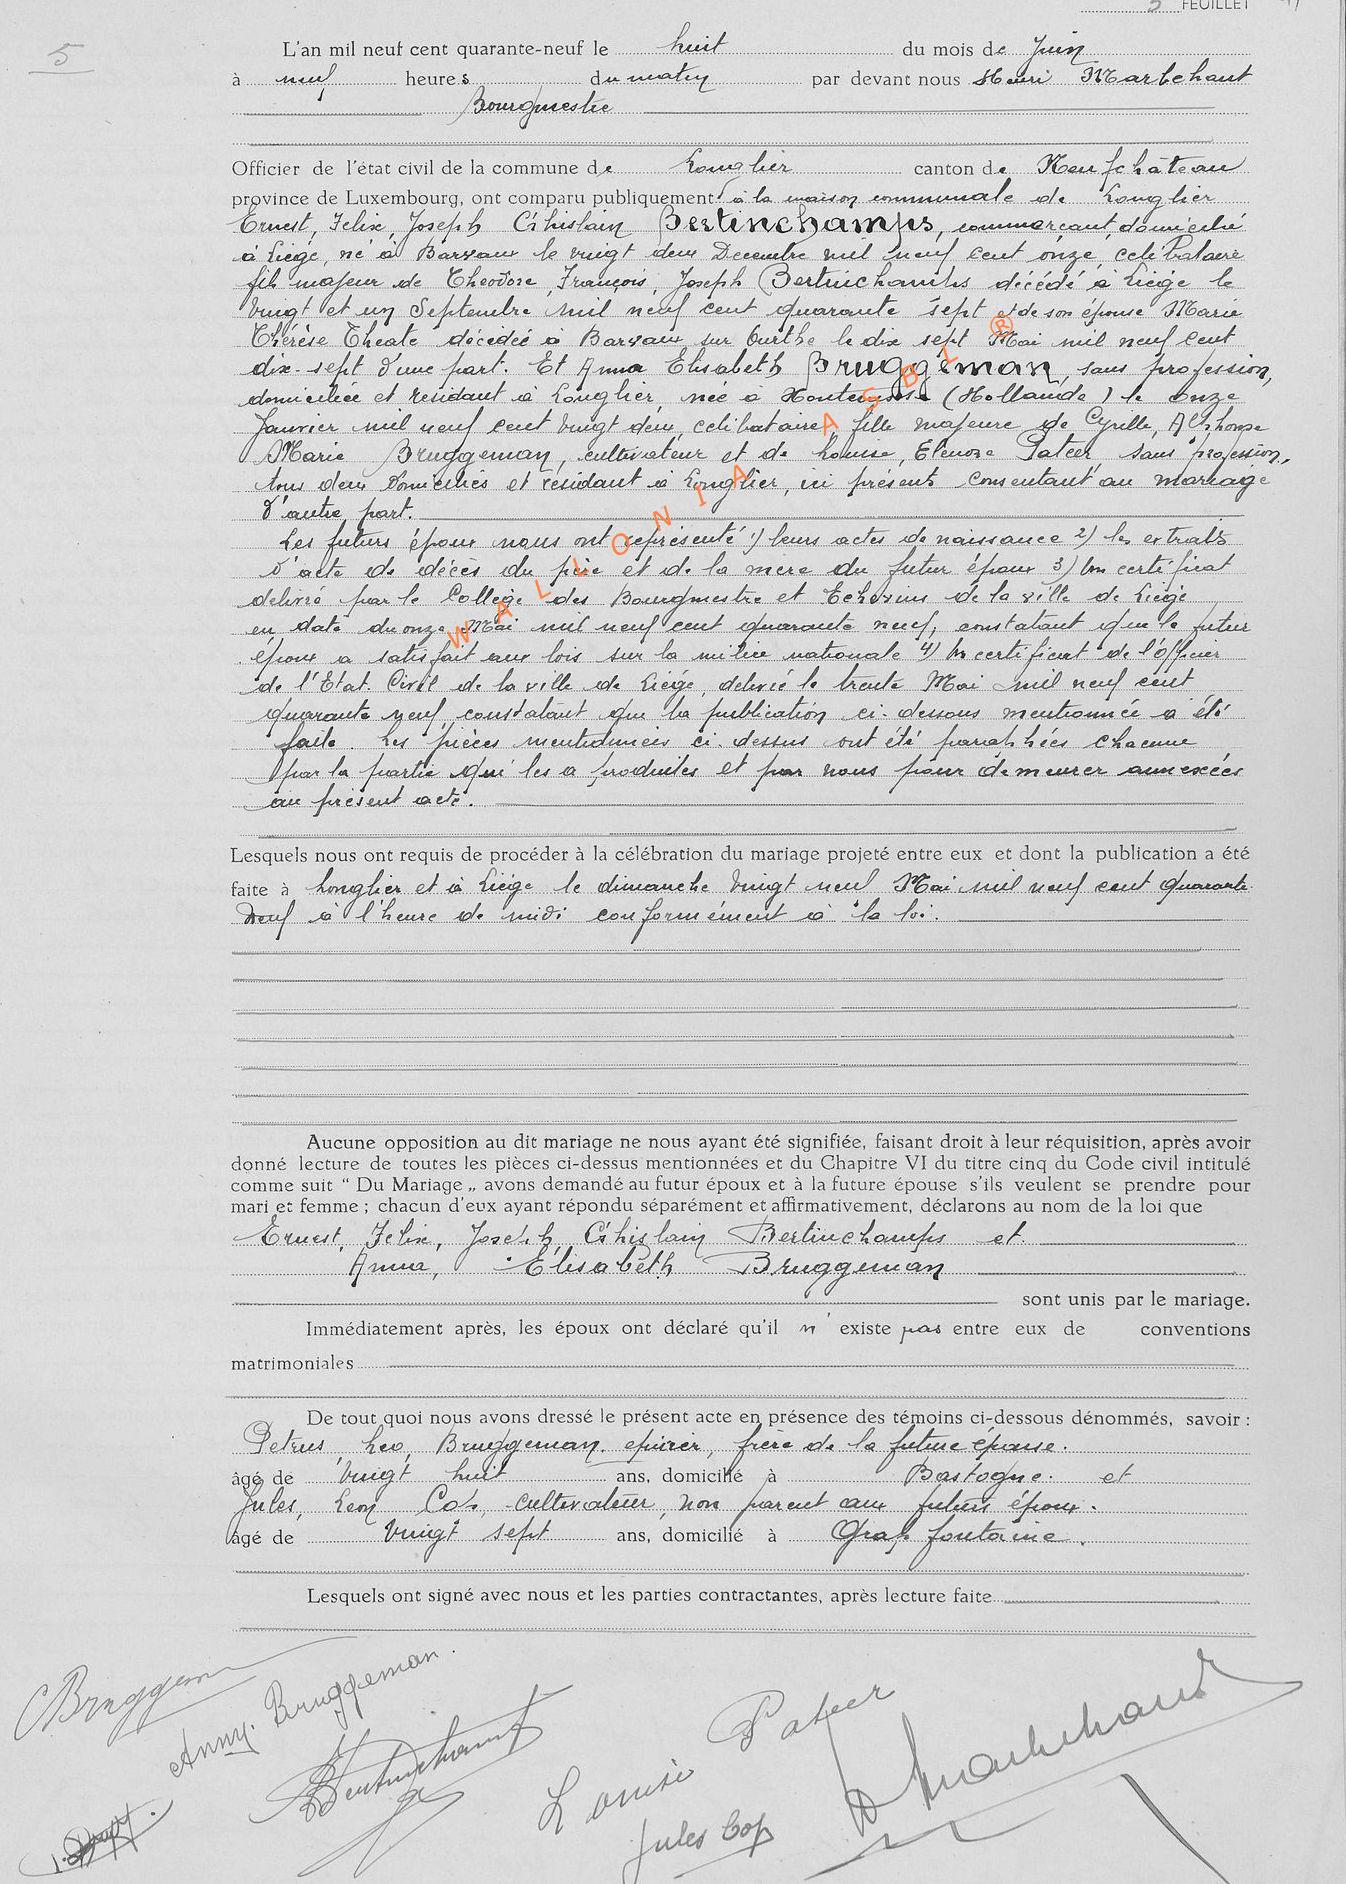 5 FEUILLET
5
L'an mil neuf cent quarante-neuf le huit du mois de Juin
à neuf heures du matin par devant nous Henri Marbehant
Bourgmestre
Officier de l'état civil de la commune de Longlier canton de Neufchâteau
province de Luxembourg, ont comparu publiquement à la maison communale de Longlier
Ernest, Felix, Joseph Ghislain Bertinchamps, commerçant, domicilié
à Liége, né à Barvaux le vingt deux Decembre mil neuf cent onze, celibataire
fils majeur de Theodore, François, Joseph Bertinchamps décédé à Liége le
vingt et un Septembre mil neuf cent quarante sept et de son épouse Marie
Thérèse Theate décédée à Barvaux sur Ourthe le dix sept Mai mil neuf cent
dix-sept d'une part. Et Anna Elisabeth Bruggeman, sans profession,
domiciliée et résidant à Longlier, née à (Hollande) le onze
Janvier mil neuf cent vingt deux, celibataire, fille majeure de Cyrille, Alphonse
Marie Bruggeman, cultivateur et de Louise, Elenore Pateer sans profession,
tous deux domiciliés et résidant à Longlier, ici présents consentant au mariage
d'autre part.
Les futurs époux nous ont représenté 1) leurs actes de naissance 2) les extraits
d'acte de décès du père et de la mere du futur époux 3) Un certificat
delivré par le College des Bourgmestre et Echevins de la ville de Liége
en date du onze Mai mil neuf cent quarante neuf, constatant que le futur
époux a satisfait aux lois sur la milice nationale 4) Un certificat de l'Officier
de l'Etat. Civil de la ville de Liége, delivré le trente Mai mil neuf cent
quarante neuf, constatant que la publication ci-dessous mentionnée a été
faite. Les pièces mentionnées ci-dessus ont été paraphées chacune
par la partie qui les a produites et par nous pour demeurer annexées
au présent acte.
WALLONIA ASBL ®
Lesquels nous ont requis de procéder à la célébration du mariage projeté entre eux et dont la publication a été
faite à Longlier et à Liége le dimanche vingt neuf Mai mil neuf cent quarante
neuf à l'heure de midi conformément à la loi.
Aucune opposition au dit mariage ne nous ayant été signifiée, faisant droit à leur réquisition, après avoir
donné lecture de toutes les pièces ci-dessus mentionnées et du Chapitre VI du titre cinq du Code civil intitulé
comme suit “ Du Mariage „ avons demandé au futur époux et à la future épouse s'ils veulent se prendre pour
mari et femme ; chacun d'eux ayant répondu séparément et affirmativement, déclarons au nom de la loi que
Ernest, Felix, Joseph, Ghislain Bertinchamps et
Anna, Elisabeth Bruggeman
sont unis par le mariage.
Immédiatement après, les époux ont déclaré qu'il n' existe pas entre eux de conventions
matrimoniales
De tout quoi nous avons dressé le présent acte en présence des témoins ci-dessous dénommés, savoir :
Petrus, Leo, Bruggeman, epicier, frère de la future épouse.
âgé de vingt huit ans, domicilié à Bastogne. et
Jules, Leon Cop, cultivateur, non parent aux futurs époux.
âgé de vingt sept ans, domicilié à Grapfontaine.
Lesquels ont signé avec nous et les parties contractantes, après lecture faite
C Bruggeman
Anny. Bruggeman.
Bertinchamps
Louise Pateer
Jules Cop
H Marbehant